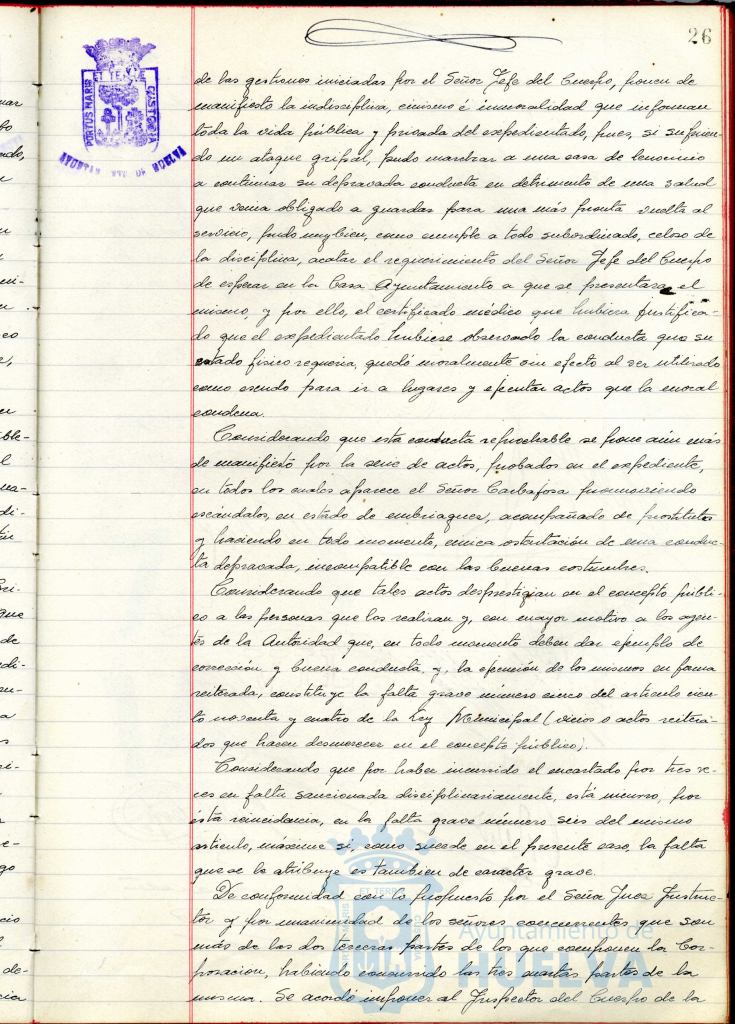 26
PORTUS MARIS ET TERRE CUSTODIA
AYUNTAMIENTO DE HUELVA
de las gestiones iniciadas por el Señor Jefe del Cuerpo, ponen de
manifiesto la indisciplina, cinismo é inmoralidad que informan
toda la vida pública y privada del expedientado, pues, si sufrien-
do un ataque gripal, pudo marchar a una casa de lenocinio
a continuar su depravada conducta en detrimento de una salud
que venia obligado a guardar para una más pronta vuelta al
servicio, pudo muy bien, como cumple a todo subordinado, celoso de
la disciplina, acatar el requerimiento del Señor Jefe del Cuerpo
de esperar en la Casa Ayuntamiento a que se presentara el
mismo, y por ello, el certificado médico que hubiera justifica-
do que el expedientado hubiese observado la conducta que su
estado físico requeria, quedó moralmente sin efecto al ser utilizado
como escudo para ir a lugares y ejecutar actos que la moral
condena.
Considerando que esta conducta reprochable se pone aún más
de manifiesto por la serie de actos, probados en el expediente,
en todos los cuales aparece el Señor Carbajosa promoviendo
escándalos, en estado de embriaguez, acompañado de prostitutas
y haciendo en todo momento, cinica ostentación de una conduc-
ta depravada, incompatible con las buenas costumbres.
Considerando que tales actos desprestigian en el concepto públi-
co a las personas que los realizan y, con mayor motivo a los agen-
tes de la Autoridad que, en todo momento deben dar ejemplo de
corrección y buena conducta, y, la ejecución de los mismos en forma
reiterada, constituye la falta grave número cinco del articulo cien-
to noventa y cuatro de la Ley Municipal (vicios o actos reitera-
dos que hacen desmerecer en el concepto público).
Considerando que por haber incurrido el encartado por tres ve-
ces en falta sancionada disciplinariamente, está incurso, por
ésta reincidencia, en la falta grave número seis del mismo
articulo, máxime si, como sucede en el presente caso, la falta
que se le atribuye es tambien de caracter grave.
De conformidad con lo propuesto por el Señor Juez Instruc-
tor y por unanimidad de los señores concurrentes que son
más de las dos terceras partes de los que componen la Cor-
poracion, habiendo concurrido las tres cuartas partes de la
misma. Se acordó imponer al Inspector del Cuerpo de la
Ayuntamiento de
HUELVA